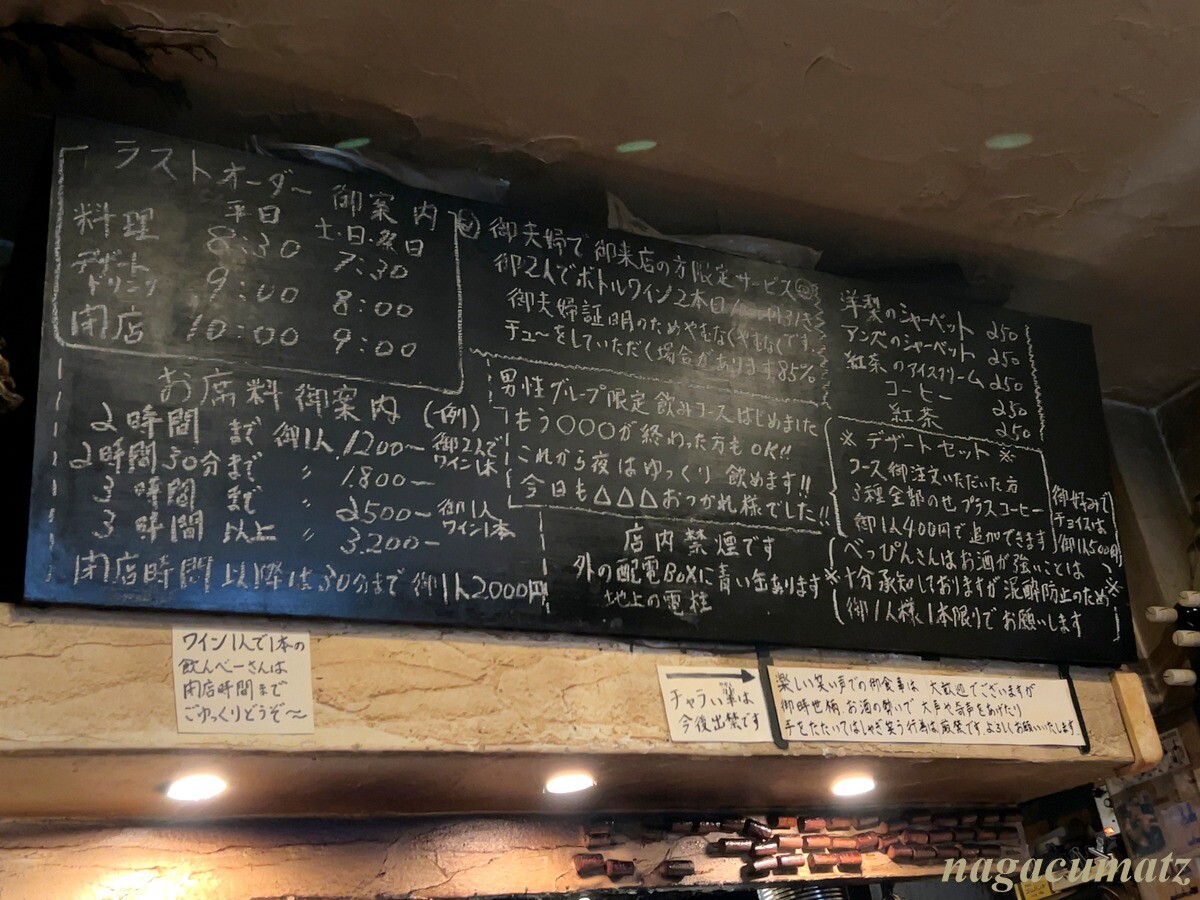 ラストオーダー 御案内
平日 土・日・祭日
料理 8:30 7:30
デザート
ドリンク 9:00 8:00
閉店 10:00 9:00
お席料御案内 (例)
2時間 まで 御1人 1200ー 御2人でワイン1本
2時間30分まで 〃 1.800ー
3時間 まで 〃 2500ー 御1人ワイン1本
3時間 以上 〃 3.200ー
閉店時間以降は30分まで御1人2000円
御夫婦で御来店の方限定サービス
御2人でボトルワイン2本目 円引き
御夫婦証明のためやむなくやむなくです..
チューをしていただく場合があります85%
男性グループ限定飲みコースはじめました
もう○○○が終わった方もOK!!
これから夜はゆっくり飲めます!!
今日も△△△おつかれ様でした!!
店内禁煙です
外の配電BOXに青い缶あります
地上の電柱
洋梨のシャーベット 250
アンズのシャーベット 250
紅茶のアイスクリーム 250
コーヒー 250
紅茶 250
※デザートセット※
コース御注文いただいた方
3種全部のせプラスコーヒー
御1人400円で追加できます
御好みで
チョイスは
御1人500円
べっぴんさんはお酒が強いことは
※十分承知しておりますが泥酔防止のため※
御1人様1本限りでお願いします
ワイン1人で1本の
飲んべーさんは
閉店時間まで
ごゆっくりどうぞ〜
→
チャラい輩は
今後出禁です
楽しい笑い声での御食事は 大歓迎でございますが
御時世柄 お酒の勢いで 大声や奇声をあげたり
手をたたいてはしゃぎ笑う行為は厳禁です よろしくお願いいたします.
nagacumatz